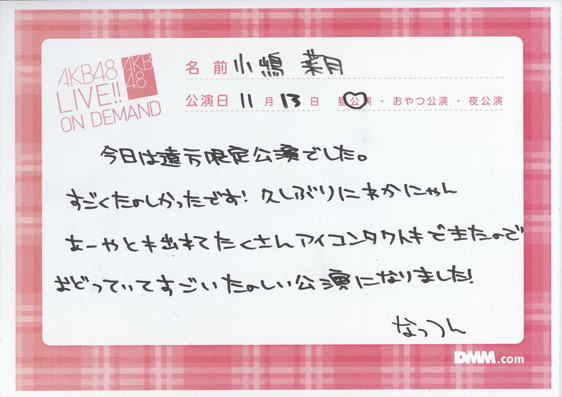 AKB48
LIVE!!
ON DEMAND
AKB
48
名前 小嶋 菜月
公演日 11月 13日 昼公演・おやつ公演・夜公演
今日は遠方限定公演でした。
すごくたのしかったです! 久しぶりにわかにゃん
むーやとも出れてたくさんアイコンタクトもできたので
おどっていてすごいたのしい公演になりました!
なっつん
DMM.com